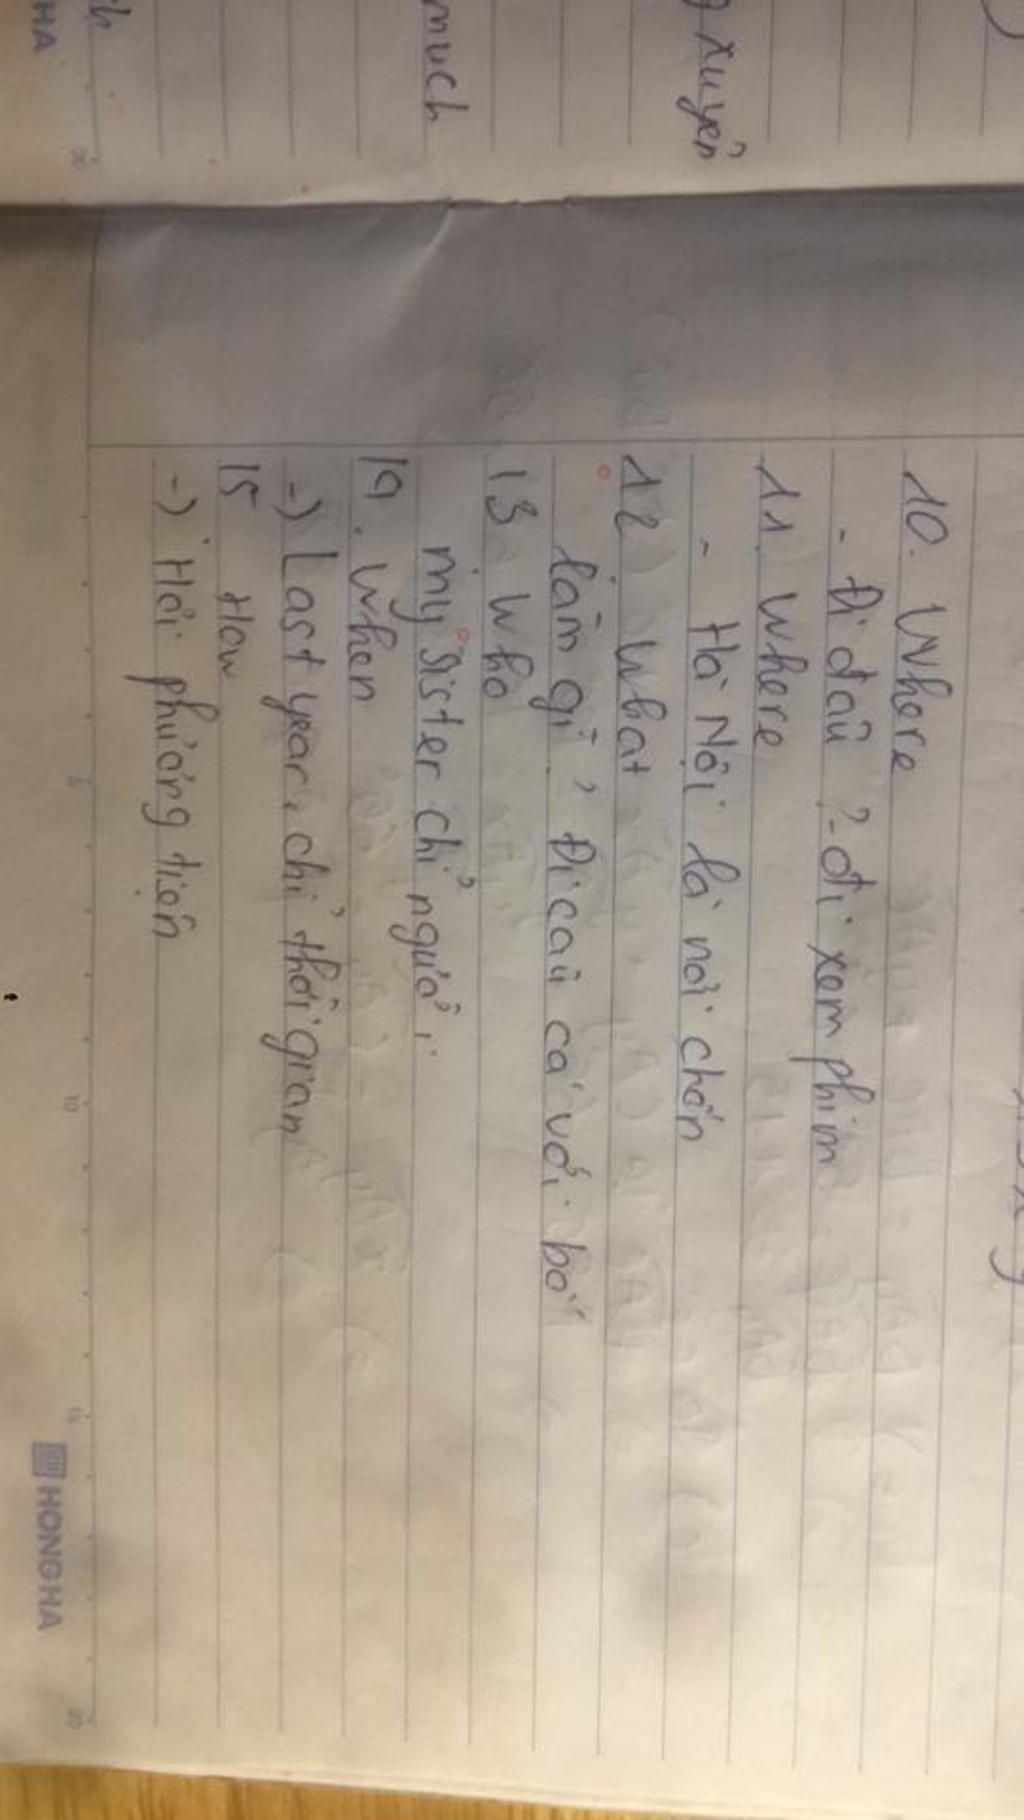 xuyên
much
10. Where
- Đi đâu ? - đi xem phim
11. Where
- Hà Nội là nơi chốn
12 What
làm gì ? Đi câu cá với bố
13 Who
my sister chỉ người
14. When
-) Last year, chỉ thời gian
15 How
-) Hỏi phương tiện
HONG HA
HA
5
10
15
20
20